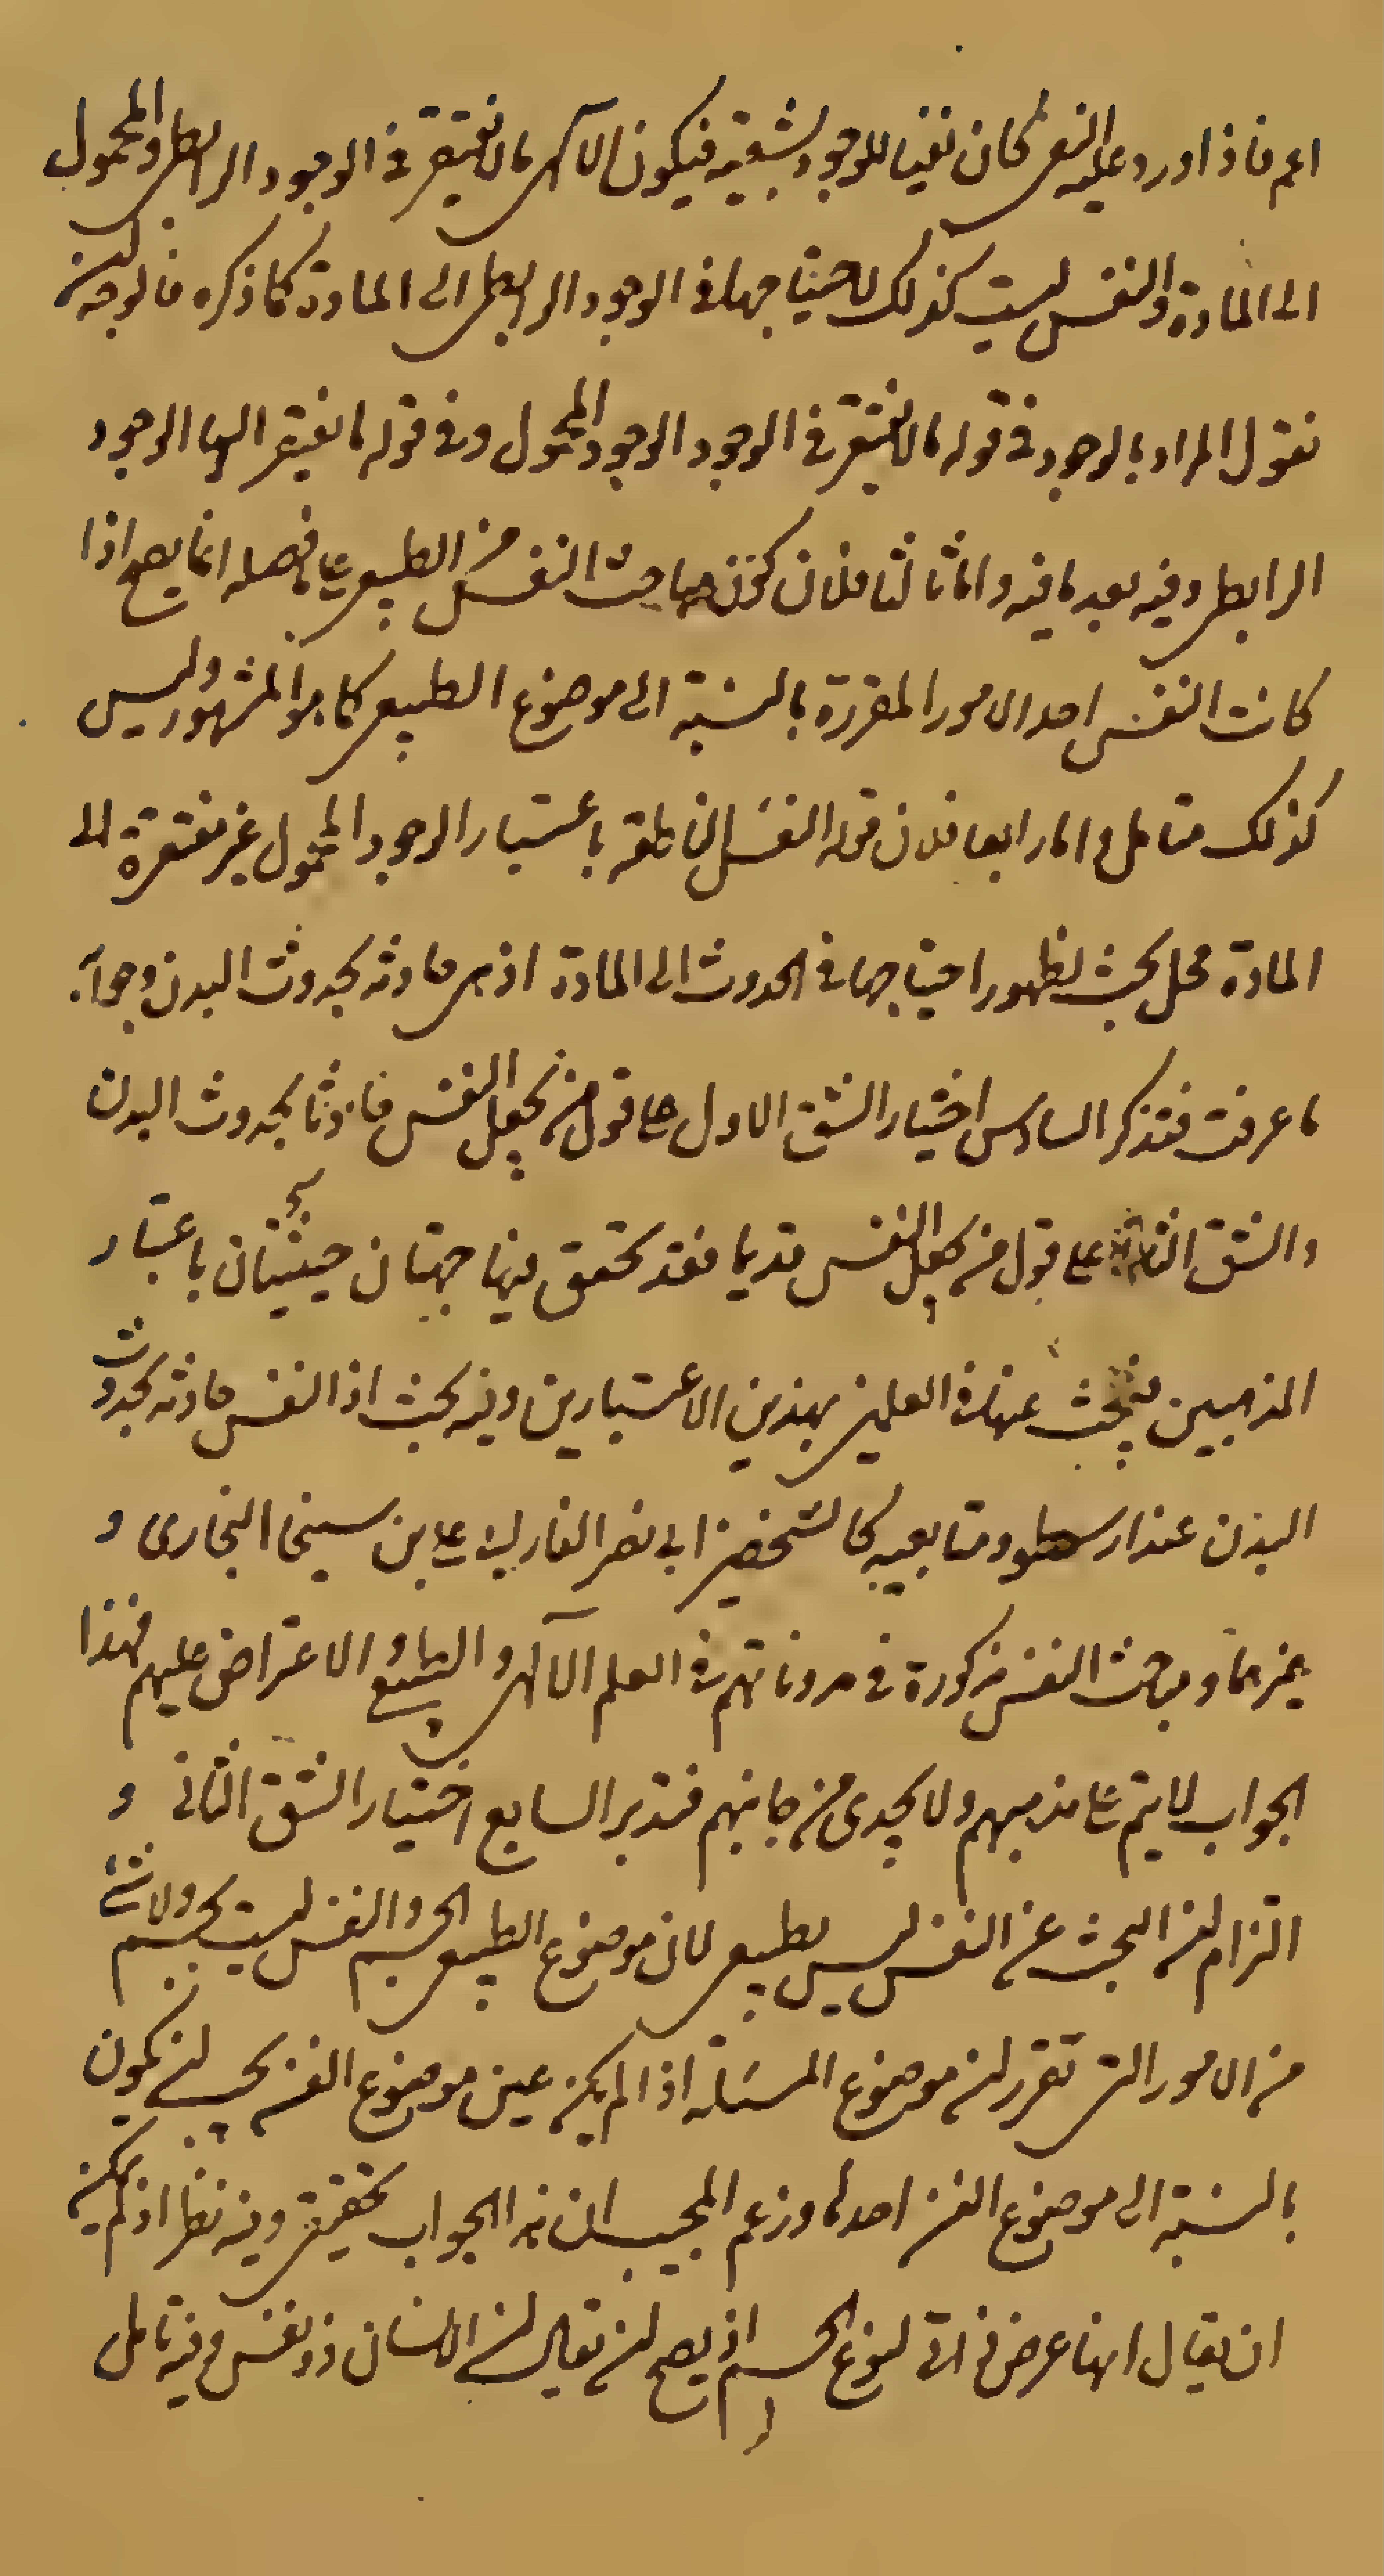 اعم فاذا ورد عليه النفى كان نفيا للوجود بشقيه فيكون الالهى ما لا يفتقر فى الوجود الرابطى والمحمولى
الى المادة والنفس ليست كذلك لاحتياجها فى الوجود الرابطى الى المادة كما ذكره فالوجه ان
نقول المراد بالوجود فى قوله ما لا يفتقر فى الوجود الوجود المحمولى وفى قوله ما يفتقر اليها الوجود
الرابطى وفيه بعد ما فيه واما ثالثا فلان كون مباحث النفس من الطبيعى على ما فصله انما يصح اذا
كانت النفس احد الامور المقررة بالنسبة الى موضوع الطبيعى كما هو المشهور وليس
كذلك فتامل واما رابعا فلان قوله النفس الناطقة باعتبار الوجود المحمولى غير مفتقرة الى
المادة محل بحث لظهور احتياجها فى الحدوث الى المادة اذ هى حادثه بحدوث البدن وجوابه
ما عرفت فتذكر السادس اختيار الشق الاول على قول من يجعل النفس حادثا بحدوث البدن
والشق الثانى على قول من يجعل النفس قديما فقد تحقق فيها جهتان حيثيتان باعتبار
المذهبين فيبحث عنها فى العلمين بهذين الاعتبارين وفيه بحث اذ النفس حادثه بحدوث
البدن عند ارسطو ومتابعيه كالشيخين ابى نصر الفارابى وعلى بن سينا البخارى و
غيرهما ومباحث النفس مذكورة فى مدوناتهم فى العلم الالهى والشايع الاعتراض عليهم فهذا
الجواب لا يتم على مذهبهم ولا يجدى من جانبهم فتدبر السابع اختيار الشق الثانى و
التزام ان البحث عن النفس ليس بطبيعى لان موضوع الطبيعى الجسم والنفس ليست بجسم ولا شئ
من الامور التى تقرر ان موضوع المسئلة اذا لم يكن عين موضوع الفن يجب ان يكون
بالنسبة الى موضوع الفن احدها وزعم المجيب ان هذا الجواب تحقيقى وفيه نظر اذ يمكن
ان يقال انها عرض ذاتى لنوع الجسم اذ يصح ان يقال ان الانسان ذو نفس وفيه تامل